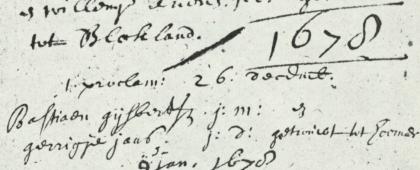 tot Blokland.
1678
1. proclam: 26. decemb.
Bastiaen gijsbertsz j: m: en
gerrigje jans. j: d: getrouwt tot
9 jan. 1678